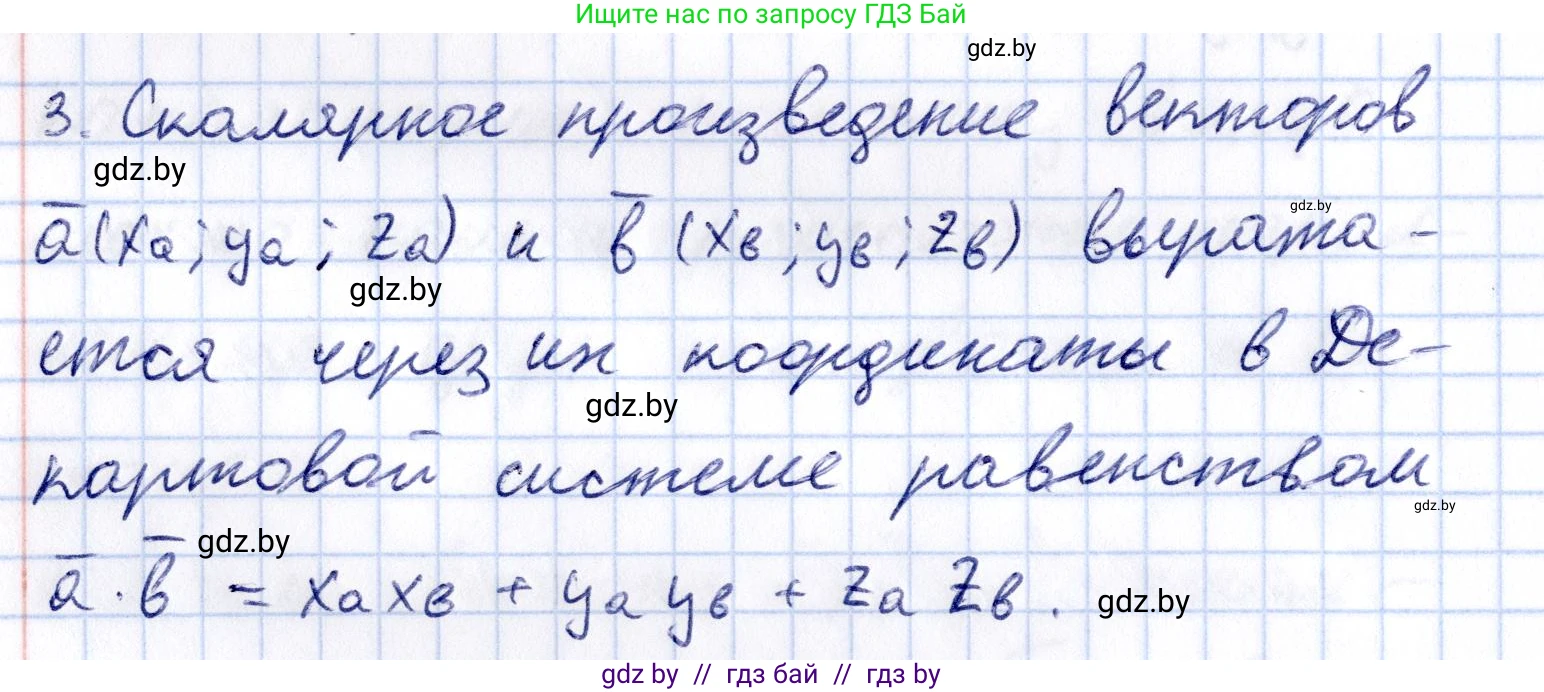 Ищите нас по запросу ГДЗ Бай
gdz.by
3. Скалярное произведение векторов
gdz.by
a̅(xa; ya; za) и b̅(xв; yв; zв) выража-
gdz.by
gdz.by
ется через их координаты в Де-
gdz.by
картовой системе равенством
gdz.by
gdz.by
a̅ · b̅ = xa xв + ya yв + za zв.
gdz.by
gdz by // гдз бай // гдз by